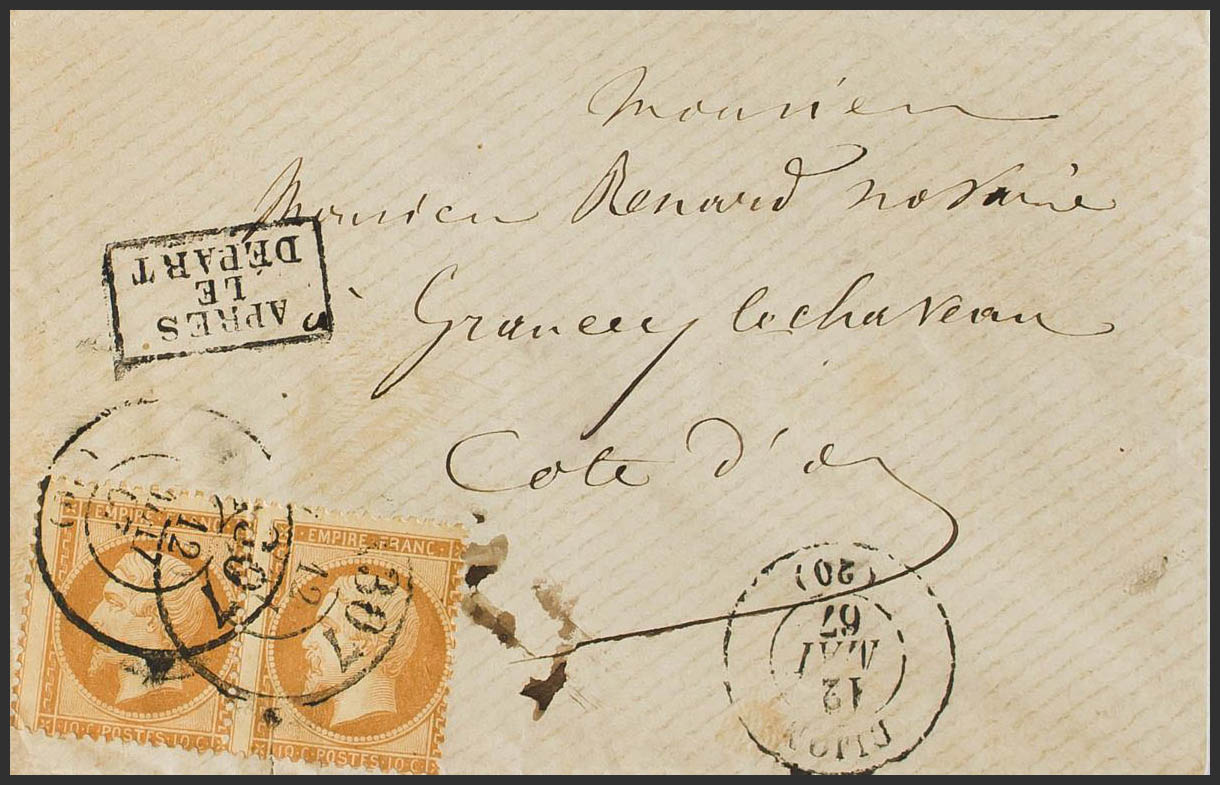 Monsieur
Monsieur Renard notaire
à Grancey le chateau
Cote d'or
APRÈS
LE
DÉPART
EMPIRE FRANC
10·C·POSTES·10·C
EMPIRE FRANC·
10·C·POSTES·10·C
12
307
12
307
DIJON
12
MAI
67
(20)